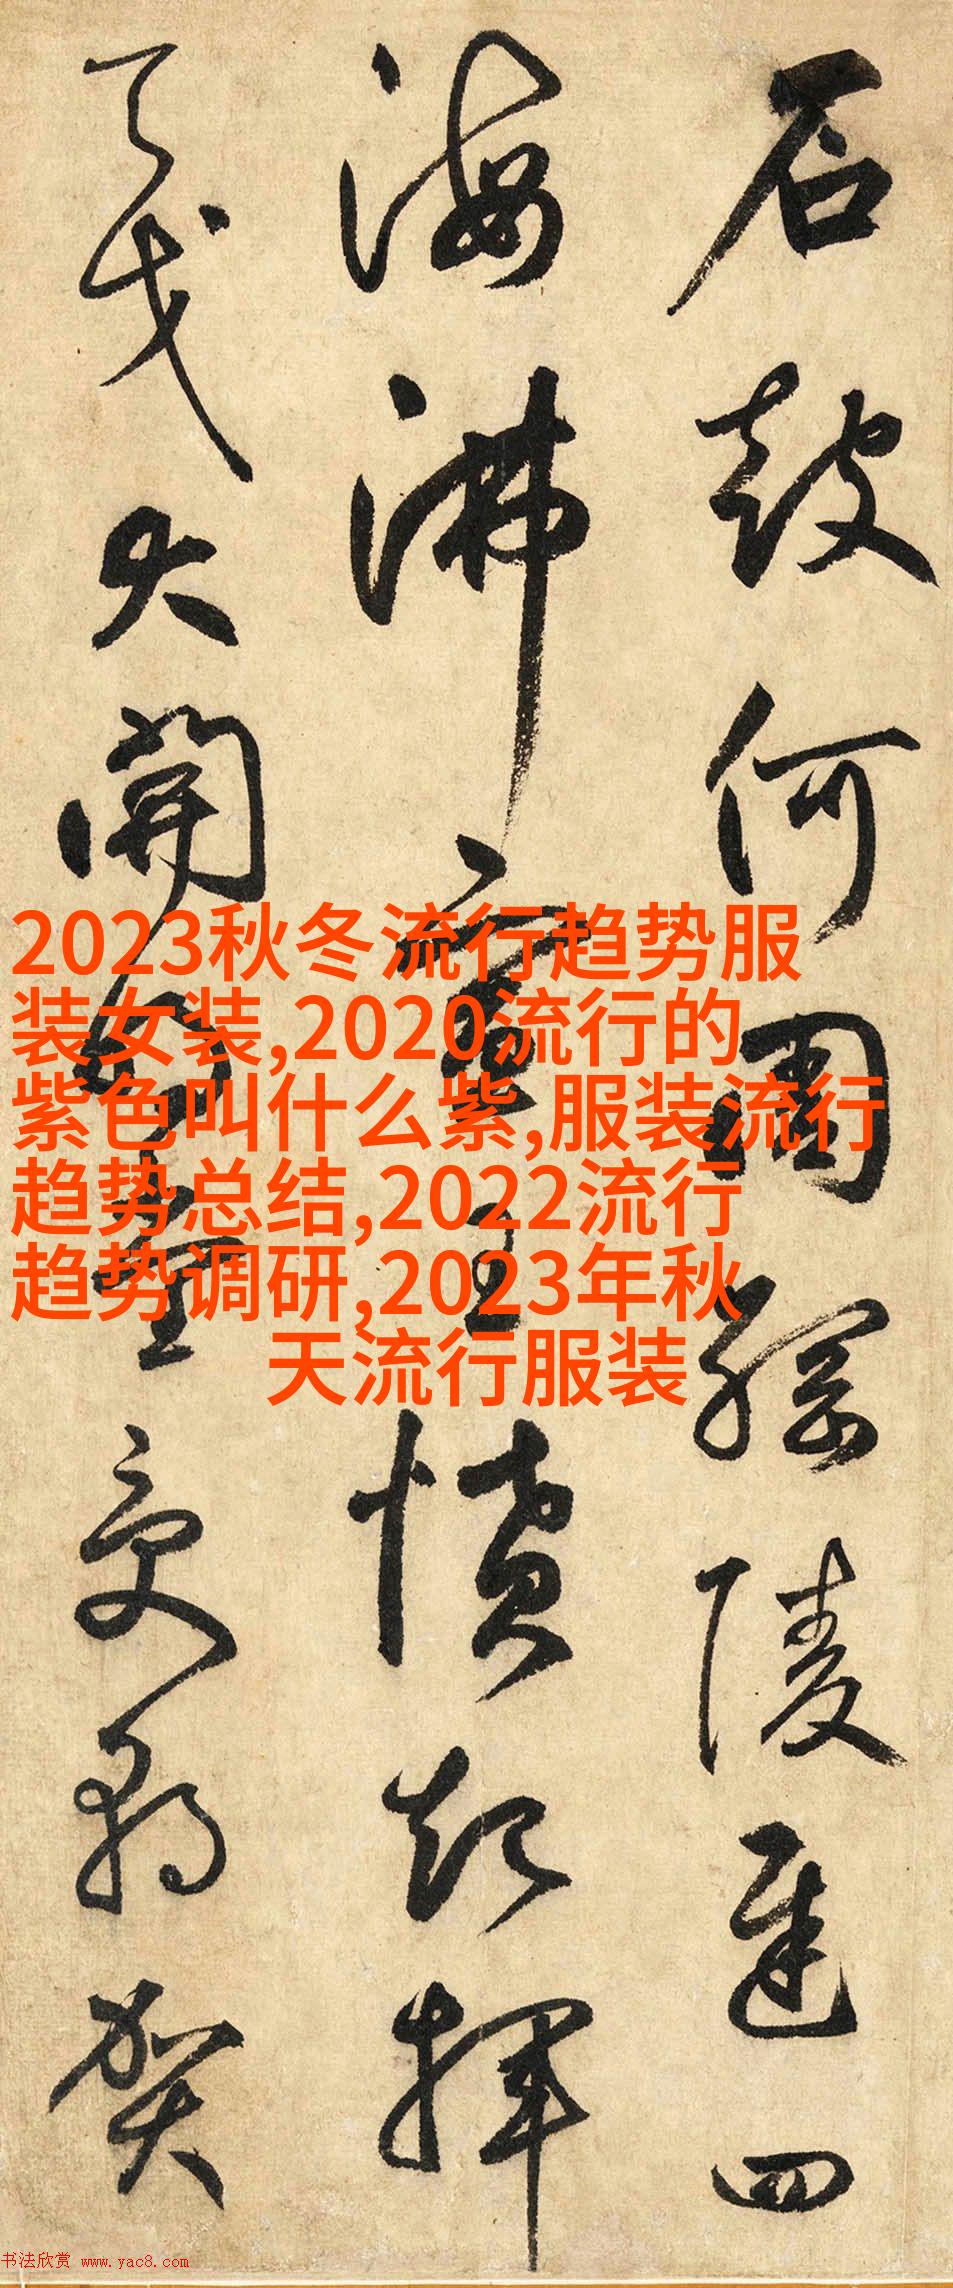 石鼓何周綱陵遲四
海沸宣王憤起揮
天戈大開明堂受朝賀
2023秋冬流行趋势服
装女装,2020流行的
紫色叫什么紫,服装流行
趋势总结,2022流行
趋势调研,2023年秋
天流行服装
书法欣赏 www.yac8.com